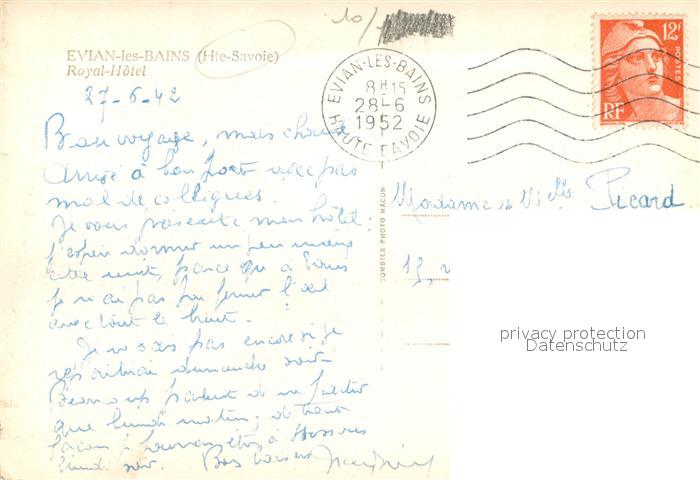 EVIAN-les-BAINS (Hte-Savoie)
Royal-Hôtel
27-6-42
Bon voyage, mais chaud
Arrivé à bon port avec pas
mal de collègues.
Je vous présente mon hôtel.
J'espère dormir un peu mieux
cette nuit, parce qu'à
je n'ai pas pu fermer l'œil
avec tout le bruit.
Je ne sais pas encore si je
repartirai dimanche soir
Beaucoup parlent de ne
que lundi matin; de toute
façon je à
lundi soir. Bons baisers
EVIAN-LES-BAINS
8H15
28-6
1952
HAUTE SAVOIE
12F
POSTES
RF
COMBIER PHOTO MACON
Madame et Picard
13,
privacy protection
Datenschutz